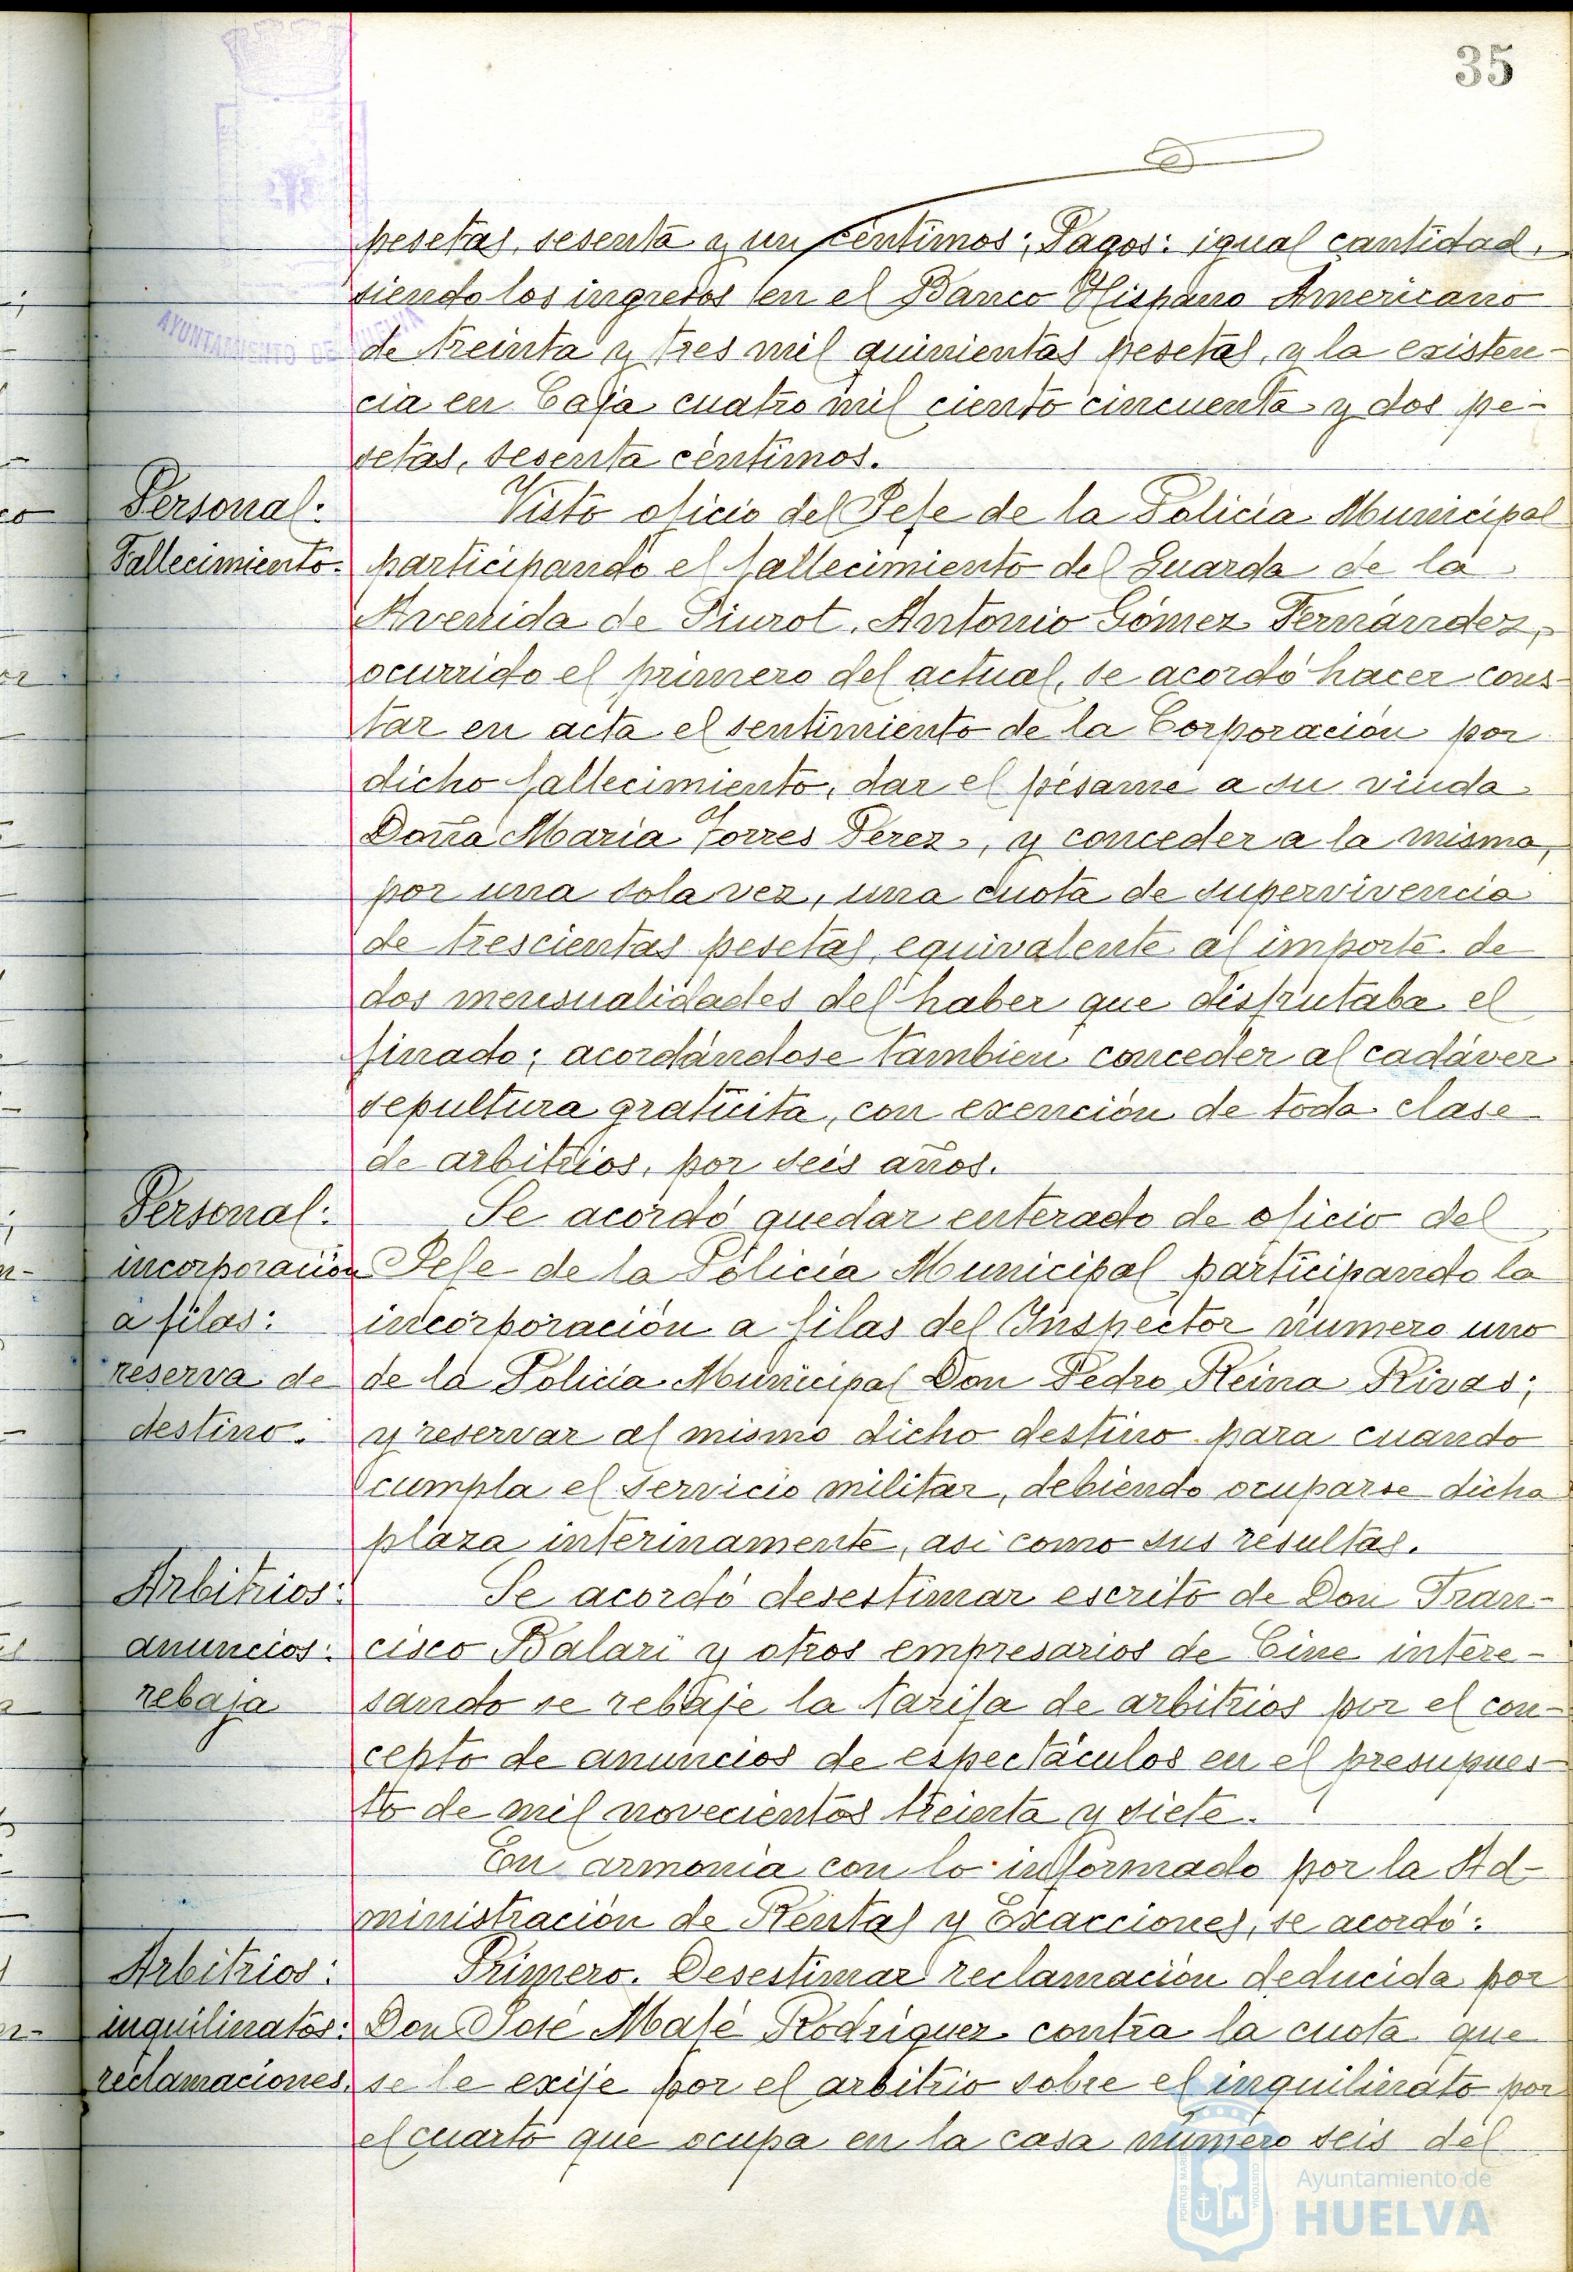 35
pesetas, sesenta y un céntimos; Pagos: igual cantidad,
siendo los ingresos en el Banco Hispano Americano
de treinta y tres mil quinientas pesetas, y la existen-
cia en Caja cuatro mil ciento cincuenta y dos pe-
setas, sesenta céntimos.
Personal:
Fallecimiento.
Visto oficio del Jefe de la Policía Municipal
participando el fallecimiento del Guarda de la
Avenida de Siurot, Antonio Gómez Fernández,
ocurrido el primero del actual, se acordó hacer cons-
tar en acta el sentimiento de la Corporación por
dicho fallecimiento, dar el pésame a su viuda
Doña María Torres Perez, y conceder a la misma,
por una sola vez, una cuota de supervivencia
de trescientas pesetas, equivalente al importe de
dos mensualidades del haber que disfrutaba el
finado; acordándose tambien conceder al cadáver
sepultura gratuita, con exención de toda clase
de arbitrios, por seis años.
Personal:
incorporación
a filas:
reserva de
destino.
Se acordó quedar enterado de oficio del
Jefe de la Policía Municipal participando la
incorporación a filas del Inspector número uno
de la Policía Municipal Don Pedro Reina Rivas;
y reservar al mismo dicho destino para cuando
cumpla el servicio militar, debiendo ocuparse dicha
plaza interinamente, asi como sus resultas.
Arbitrios:
anuncios:
rebaja
Se acordó desestimar escrito de Don Fran-
cisco Balari y otros empresarios de Cine intere-
sando se rebaje la tarifa de arbitrios por el con-
cepto de anuncios de espectáculos en el presupues-
to de mil novecientos treinta y siete.
En armonía con lo informado por la Ad-
ministración de Rentas y Exacciones, se acordó:
Arbitrios:
inquilinatos:
reclamaciones.
Primero. Desestimar reclamación deducida por
Don José Malé Rodríguez contra la cuota que
se le exije por el arbitrio sobre el inquilinato por
el cuarto que ocupa en la casa número seis del
AYUNTAMIENTO DE HUELVA
Ayuntamiento de
HUELVA